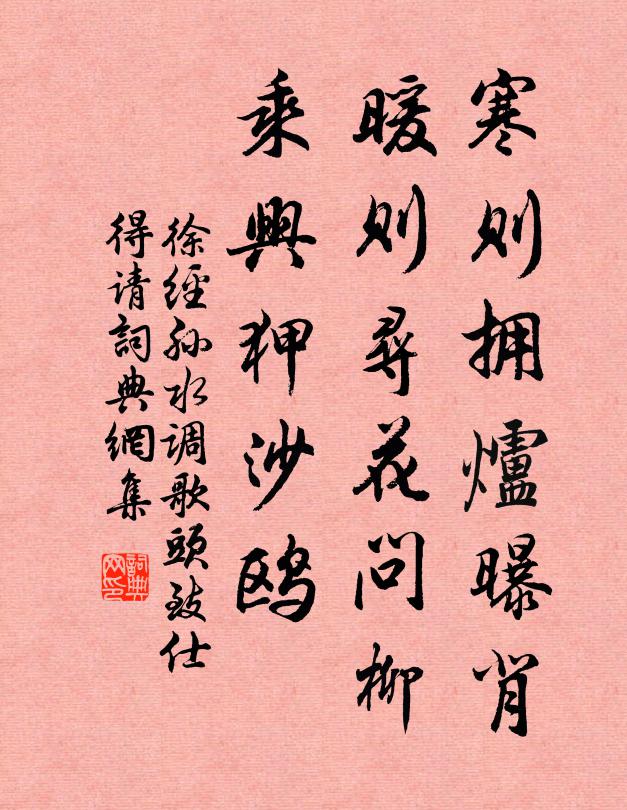 寒则拥爐曝背
暖则尋花问柳
乘興狎沙鸥
徐經孙水调歌頭致仕
得请詞典網集
詞典
网印